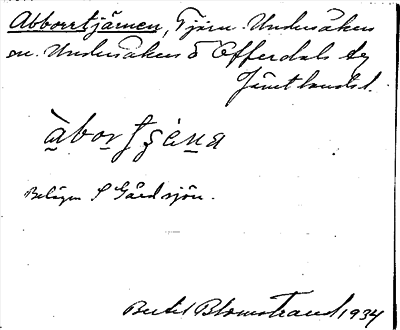 Abborrtjärnen, Tjärn. Undersåkers
sn. Undersåkers o Offerdals tg
Jämtlands l.
àborʃʂɛ́na
Belägen S Gårdsjön.
Bertil Blomstrand 1934